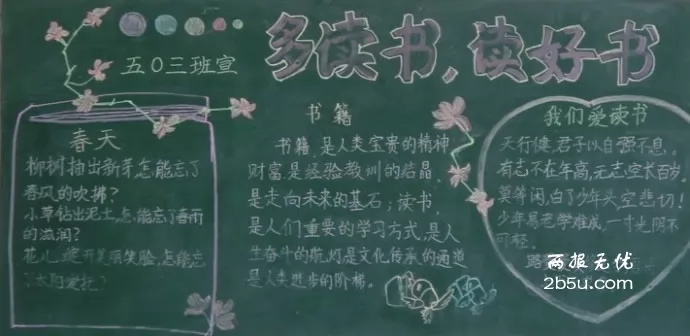 多读书,读好书
五0三班宣
春天
柳树抽出新芽,怎能忘了
春风的吹拂?
小草钻出泥土,怎能忘了春雨
的滋润?
花儿绽开笑脸,怎能忘
了太阳
书籍
书籍,是人类宝贵的精神
财富,是经验教训的结晶,
是走向未来的基石;读书,
是人们重要的学习方式,是人
生奋斗的航灯是文化传承的通道
是人类进步的阶梯。
我们爱读书
天行健,君子以自强不息。
有志不在年高,无志空长百岁。
莫等闲,白了少年头空悲切!
少年易老学难成,一寸光阴不
可轻。
路
两报无优
2b5u.com